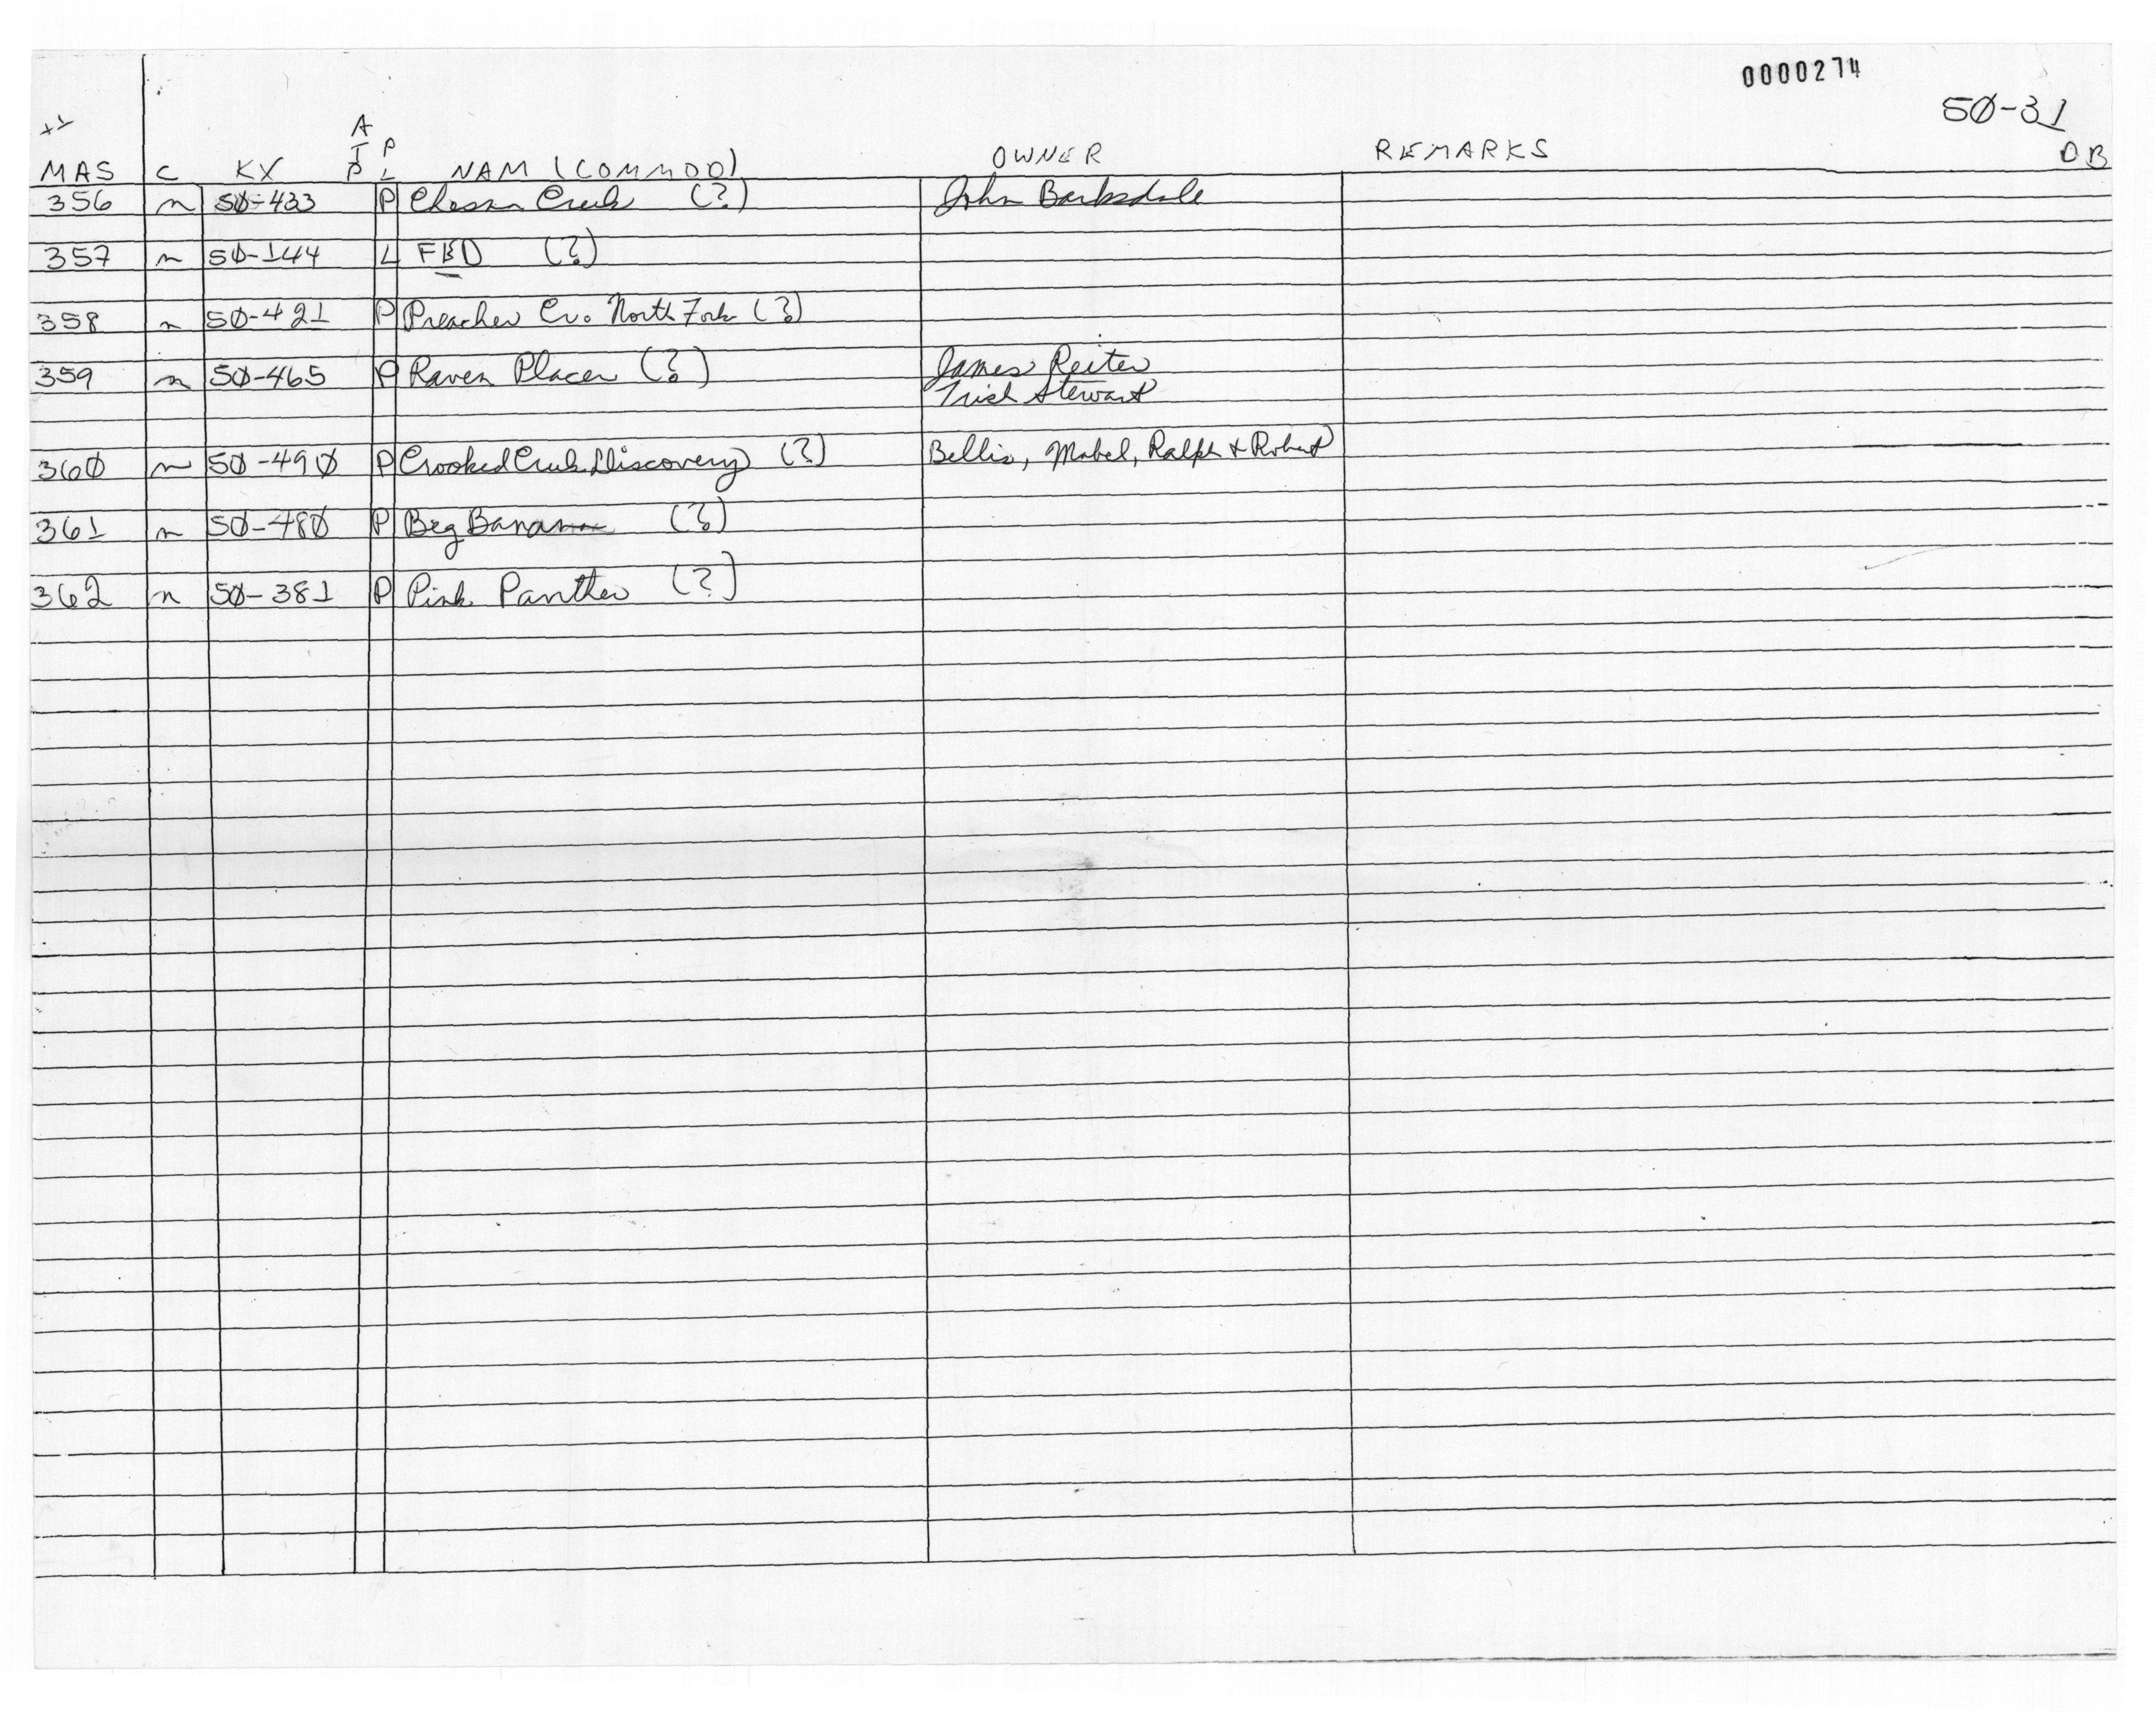 0000274
50-31
DB
MAS C KX ATP PL NAM (COMMOD) OWNER REMARKS
356 n 50-433 P Creek (?) John Barksdale
357 n 50-144 L FBD (?)
358 n 50-421 P Preacher Cr. North Fork (?)
359 n 50-465 P Raven Placer (?) James Reiter
Trish Stewart
360 n 50-490 P Crooked Creek Discovery (?) Bellis, Mabel, Ralph & Robert
361 n 50-480 P (?)
362 n 50-381 P Pink Panther (?)